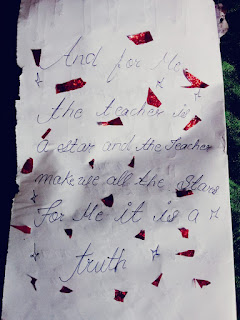 And for Me
the teacher is
a star and the Teacher
make us all the stars
For Me it is a
truth